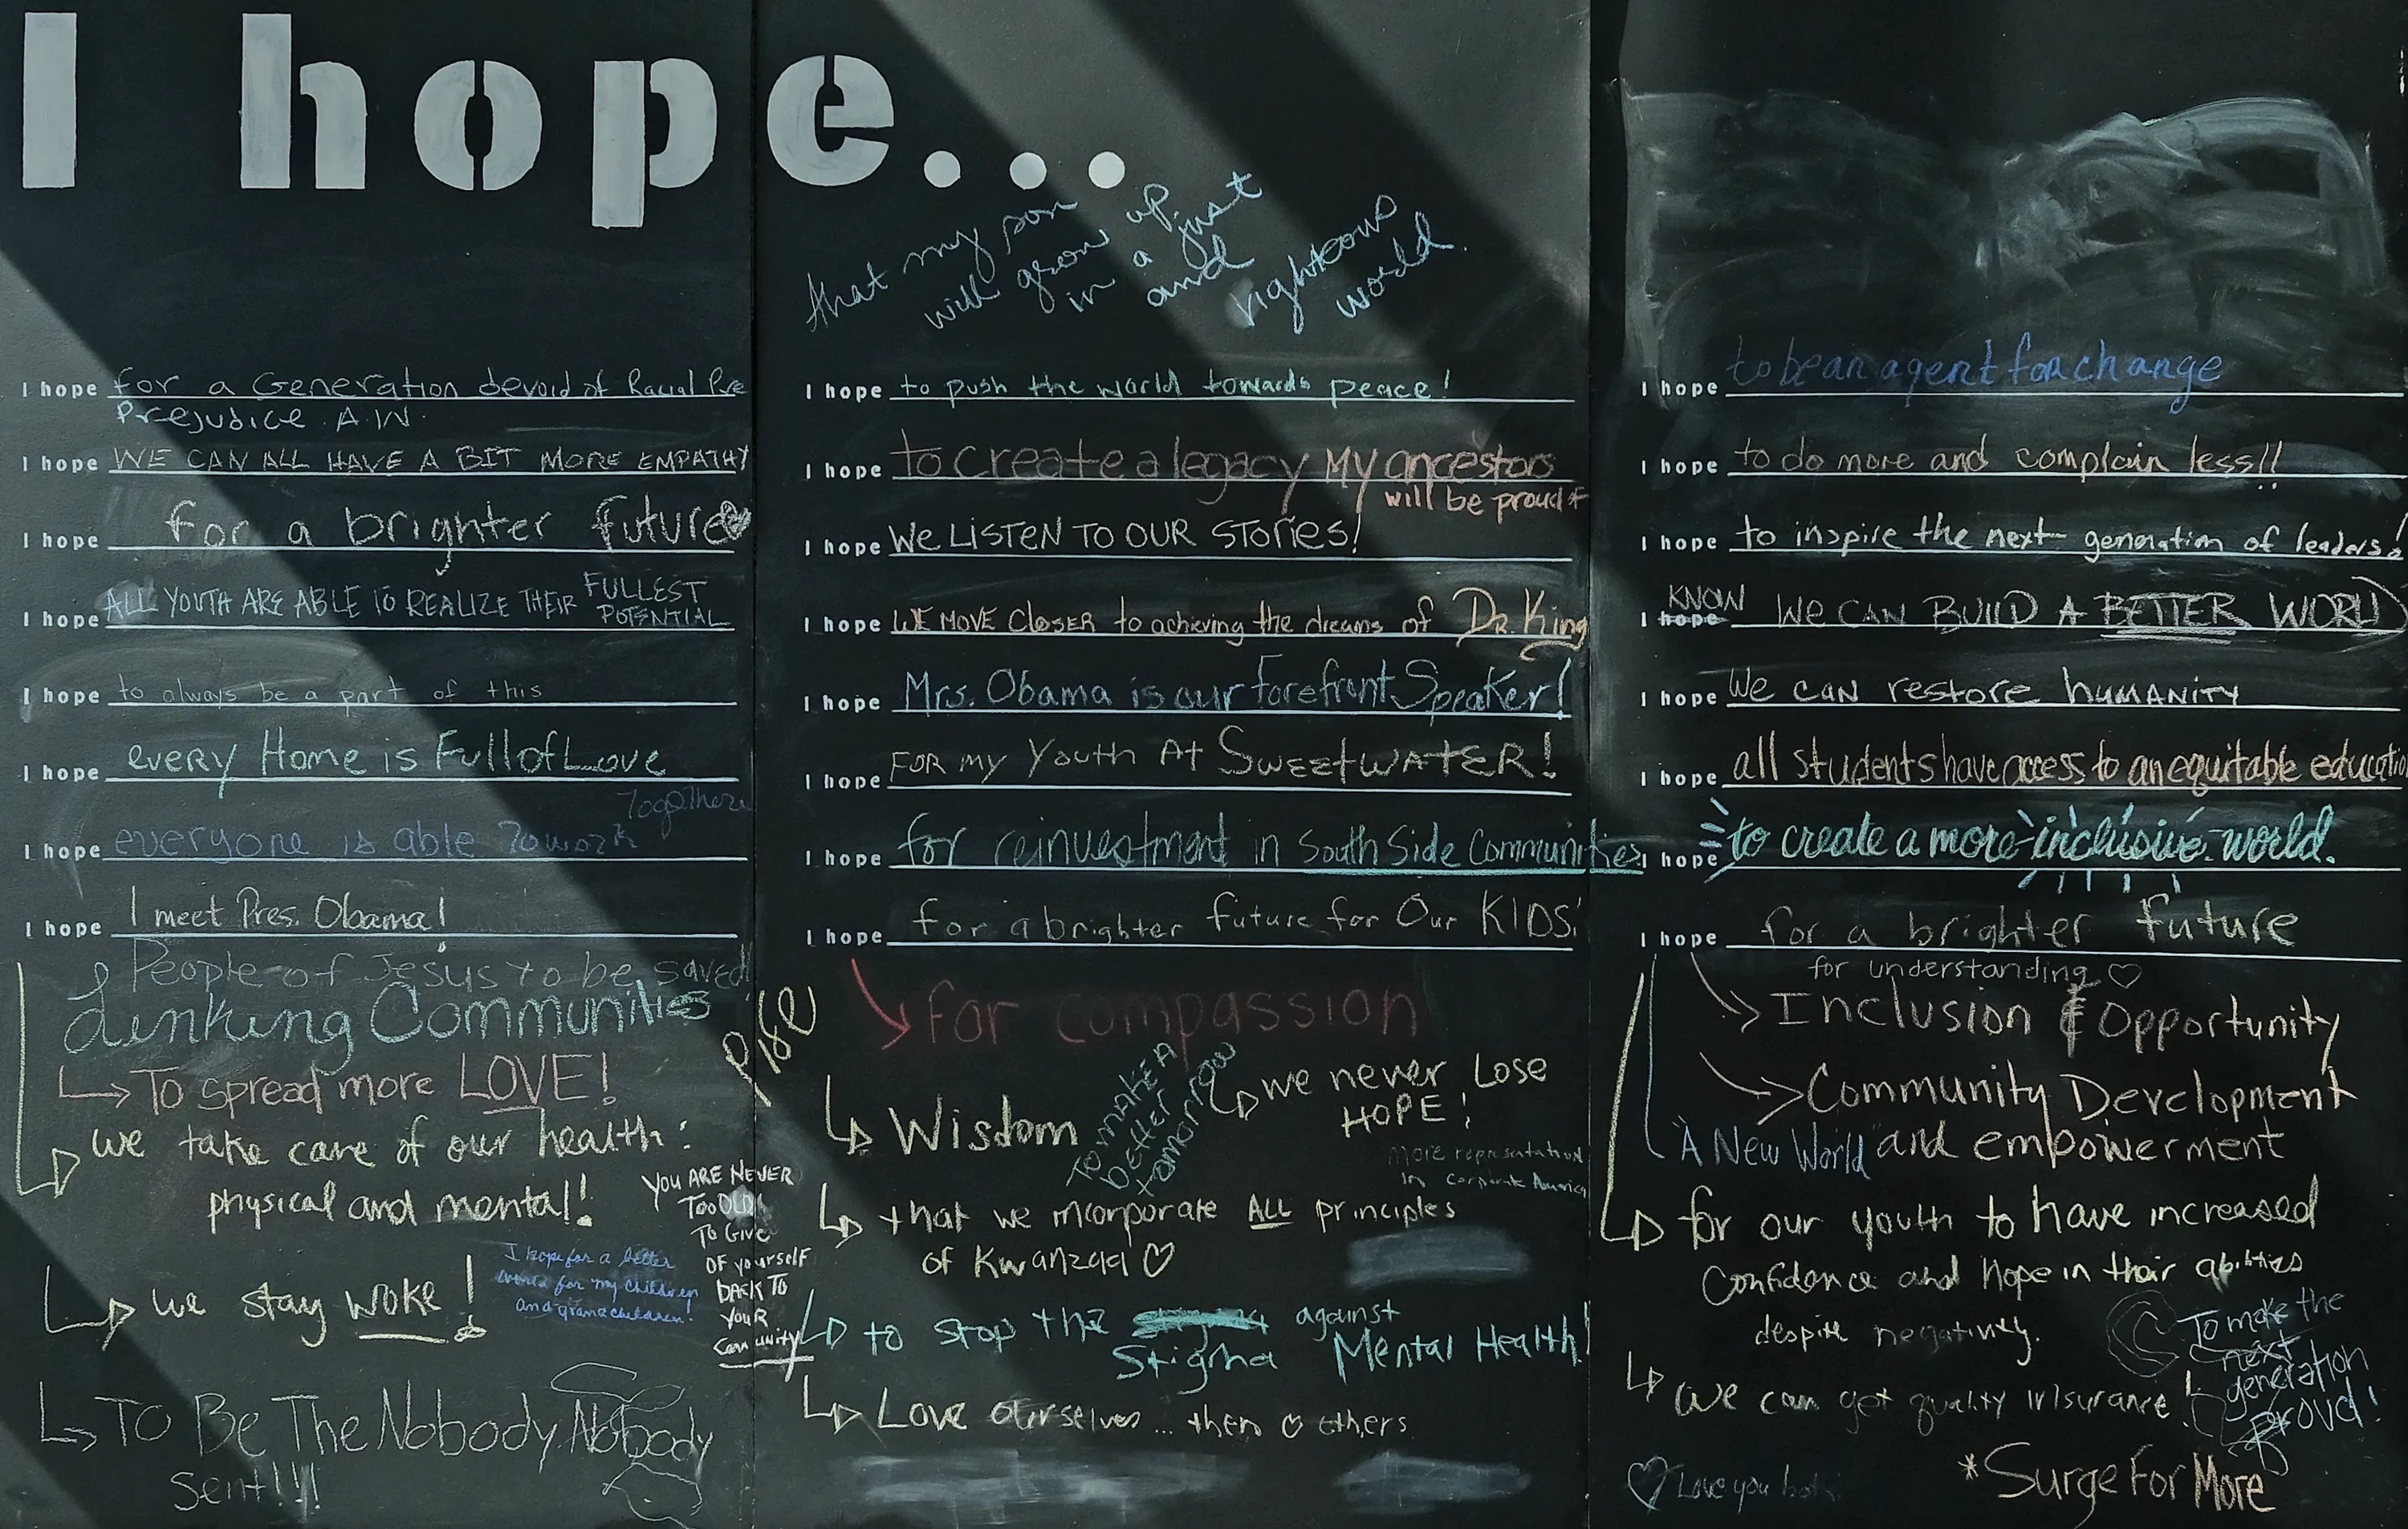 I hope...
that my son
will grow up
in a just
and
righteous
world.
I hope for a Generation devoid of Racial Pre
Prejudice. A.W.
I hope WE CAN ALL HAVE A BIT MORE EMPATHY
I hope for a brighter future
I hope ALL YOUTH ARE ABLE TO REALIZE THEIR FULLEST
POTENTIAL
I hope to always be a part of this
I hope every Home is Full of Love
I hope everyone is able to work
Together
I hope I meet Pres. Obama!
People of Jesus to be saved!
Linking Communities
To spread more LOVE!
we take care of our health:
physical and mental!
we stay woke!
I hope for a better
world for my children
and grandchildren!
YOU ARE NEVER
Too OLD
To Give
OF yourself
BACK TO
YOUR
Community
To Be The Nobody Nobody
Sent!!!
I hope to push the world towards peace!
I hope to create a legacy My ancestors
will be proud of
I hope We LISTEN TO OUR STORIES!
I hope WE MOVE CLOSER to achieving the dreams of DR. King
I hope Mrs. Obama is our forefront Speaker!
I hope FOR my Youth At SWEETWATER!
I hope for reinvestment in South Side Communities
I hope for a brighter future for Our KIDS!
for compassion
Wisdom
To make A
better
tomorrow
we never Lose
HOPE!
more representation
in corporate America
that we incorporate ALL principles
of Kwanzaa
to stop the against
Stigma Mental Health!
Love Ourselves... then others
I hope to be an agent for change
I hope to do more and complain less!!
I hope to inspire the next generation of leaders!
KNOW
I hope We CAN BUILD A BETTER WORLD
I hope We CAN restore humANiTY
I hope all students have access to an equitable educatio
I hope to create a more inclusive world.
I hope for a brighter future
for understanding
Inclusion & Opportunity
Community Development
"A New World" and empowerment
for our youth to have increased
Confidence and hope in their abilities
despite negativity.
We can get quality insurance!
To make the
next
generation
Proud!
Love you both
*Surge For More